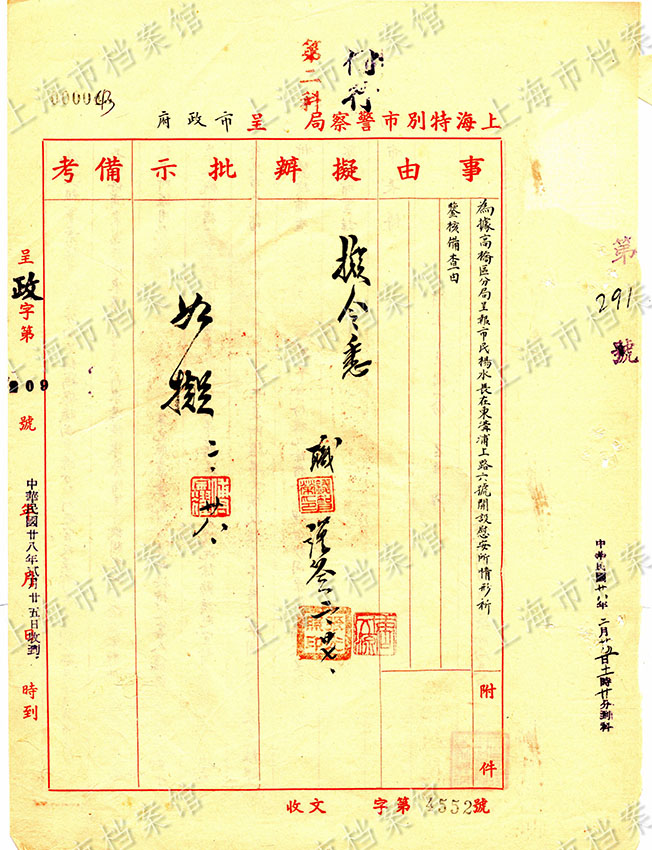 第二科
000043
上海特別市警察局 呈 市政府
事由
擬辦
批示
備考
為據高橋區分局呈報市民楊水長在東溝浦上路六號開設慰安所情形祈
鑒核備查由
指令悉
職
謹簽 二、廿七、
如擬
二、廿八、
附件
第291號
中華民國廿八年二月廿五日十一時廿分到科
呈政字第209號
年月日時到
中華民國廿八年貳月廿五日收到
收文 字第4552號
上海市档案馆